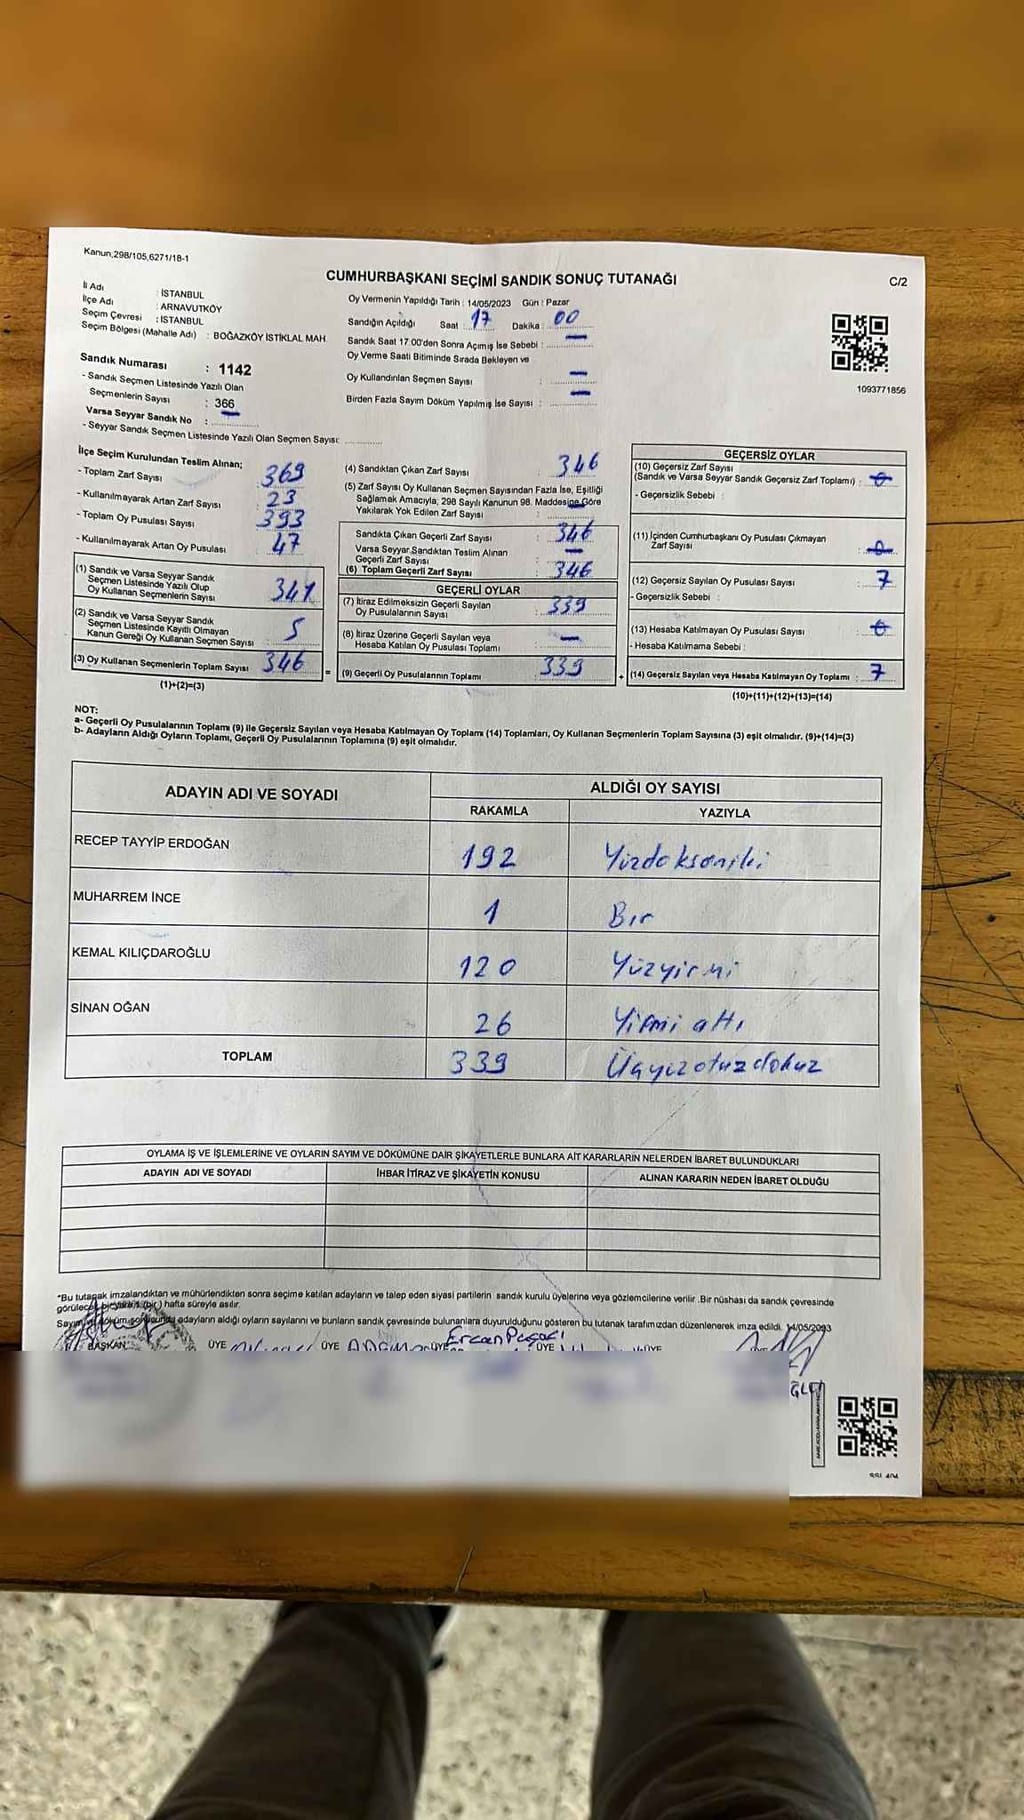 Kanun,298/105,6271/18-1
CUMHURBAŞKANI SEÇİMİ SANDIK SONUÇ TUTANAĞI
C/2
İl Adı : İSTANBUL
İlçe Adı : ARNAVUTKÖY
Seçim Çevresi : İSTANBUL
Seçim Bölgesi (Mahalle Adı) : BOĞAZKÖY İSTİKLAL MAH
Sandık Numarası : 1142
- Sandık Seçmen Listesinde Yazılı Olan
Seçmenlerin Sayısı : 366
Varsa Seyyar Sandık No : —
- Seyyar Sandık Seçmen Listesinde Yazılı Olan Seçmen Sayısı:
Oy Vermenin Yapıldığı Tarih : 14/05/2023 Gün : Pazar
Sandığın Açıldığı Saat : 17 Dakika : 00
Sandık Saat 17.00'den Sonra Açımış İse Sebebi : —
Oy Verme Saati Bitiminde Sırada Bekleyen ve
Oy Kullandırılan Seçmen Sayısı : —
Birden Fazla Sayım Döküm Yapılmış İse Sayısı : —
1093771856
İlçe Seçim Kurulundan Teslim Alınan;
- Toplam Zarf Sayısı : 369
- Kullanılmayarak Artan Zarf Sayısı : 23
- Toplam Oy Pusulası Sayısı : 393
- Kullanılmayarak Artan Oy Pusulası : 47
(1) Sandık ve Varsa Seyyar Sandık
Seçmen Listesinde Yazılı Olup
Oy Kullanan Seçmenlerin Sayısı : 341
(2) Sandık ve Varsa Seyyar Sandık
Seçmen Listesinde Kayıtlı Olmayan
Kanun Gereği Oy Kullanan Seçmen Sayısı : 5
(3) Oy Kullanan Seçmenlerin Toplam Sayısı : 346
(1)+(2)=(3)
(4) Sandıktan Çıkan Zarf Sayısı : 346
(5) Zarf Sayısı Oy Kullanan Seçmen Sayısından Fazla İse, Eşitliği
Sağlamak Amacıyla, 298 Sayılı Kanunun 98. Maddesine Göre
Yakılarak Yok Edilen Zarf Sayısı : —
Sandıkta Çıkan Geçerli Zarf Sayısı : 346
Varsa Seyyar Sandıktan Teslim Alınan
Geçerli Zarf Sayısı : —
(6) Toplam Geçerli Zarf Sayısı : 346
GEÇERLİ OYLAR
(7) İtiraz Edilmeksizin Geçerli Sayılan
Oy Pusulalarının Sayısı : 339
(8) İtiraz Üzerine Geçerli Sayılan veya
Hesaba Katılan Oy Pusulası Toplamı : —
= (9) Geçerli Oy Pusulalarının Toplamı : 339 +
GEÇERSİZ OYLAR
(10) Geçersiz Zarf Sayısı
(Sandık ve Varsa Seyyar Sandık Geçersiz Zarf Toplamı) : 0
- Geçersizlik Sebebi :
(11) İçinden Cumhurbaşkanı Oy Pusulası Çıkmayan
Zarf Sayısı : 0
(12) Geçersiz Sayılan Oy Pusulası Sayısı : 7
- Geçersizlik Sebebi :
(13) Hesaba Katılmayan Oy Pusulası Sayısı : 0
- Hesaba Katılmama Sebebi :
(14) Geçersiz Sayılan veya Hesaba Katılmayan Oy Toplamı : 7
(10)+(11)+(12)+(13)=(14)
NOT:
a- Geçerli Oy Pusulalarının Toplamı (9) ile Geçersiz Sayılan veya Hesaba Katılmayan Oy Toplamı (14) Toplamları, Oy Kullanan Seçmenlerin Toplam Sayısına (3) eşit olmalıdır. (9)+(14)=(3)
b- Adayların Aldığı Oyların Toplamı, Geçerli Oy Pusulalarının Toplamına (9) eşit olmalıdır.
ADAYIN ADI VE SOYADI ALDIĞI OY SAYISI
RAKAMLA YAZIYLA
RECEP TAYYİP ERDOĞAN 192 Yüzdoksaniki
MUHARREM İNCE 1 Bir
KEMAL KILIÇDAROĞLU 120 Yüzyirmi
SİNAN OĞAN 26 Yirmi altı
TOPLAM 339 Üçyüzotuzdokuz
OYLAMA İŞ VE İŞLEMLERİNE VE OYLARIN SAYIM VE DÖKÜMÜNE DAİR ŞİKAYETLERLE BUNLARA AİT KARARLARIN NELERDEN İBARET BULUNDUKLARI
ADAYIN ADI VE SOYADI İHBAR İTİRAZ VE ŞİKAYETİN KONUSU ALINAN KARARIN NEDEN İBARET OLDUĞU
"Bu tutanak imzalandıktan ve mühürlendikten sonra seçime katılan adayların ve talep eden siyasi partilerin sandık kurulu üyelerine veya gözlemcilerine verilir .Bir nüshası da sandık çevresinde
görülecek bir yere 1 (bir ) hafta süreyle asılır.
Sayım ve döküm sonucunda adayların aldığı oyların sayılarını ve bunların sandık çevresinde bulunanlara duyurulduğunu gösteren bu tutanak tarafımızdan düzenlenerek imza edildi. 14/05/2023
BAŞKAN ÜYE ÜYE ÜYE ÜYE ÜYE